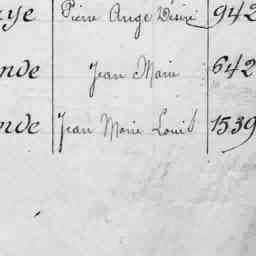 aye Pierre Ange Désiré 942
nde Jean Marie 642
nde Jean Marie Louis 1539